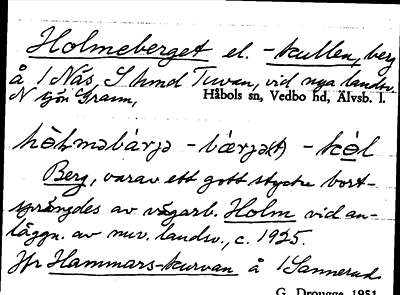 Holmeberget el. -kullen, berg
å 1 Näs, S hmd Tuvan, vid nya landsv.
N sjön Grann,
Håbols sn, Vedbo hd, Älvsb. l.
hòlməbàrjə - bærjə(t) - kól
Berg, varav ett gott stycke bort-
sprängdes av vägarb. Holm vid an-
läggn. av nuv. landsv., c. 1925.
Jfr Hammars-kurvan å 1 Sannerud
G. Drougge 1951